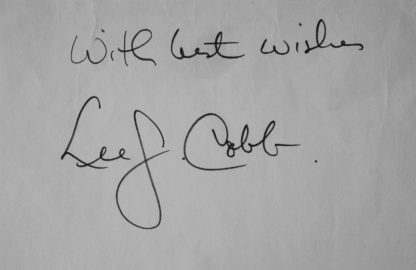 With best wishes
Lee J. Cobb.